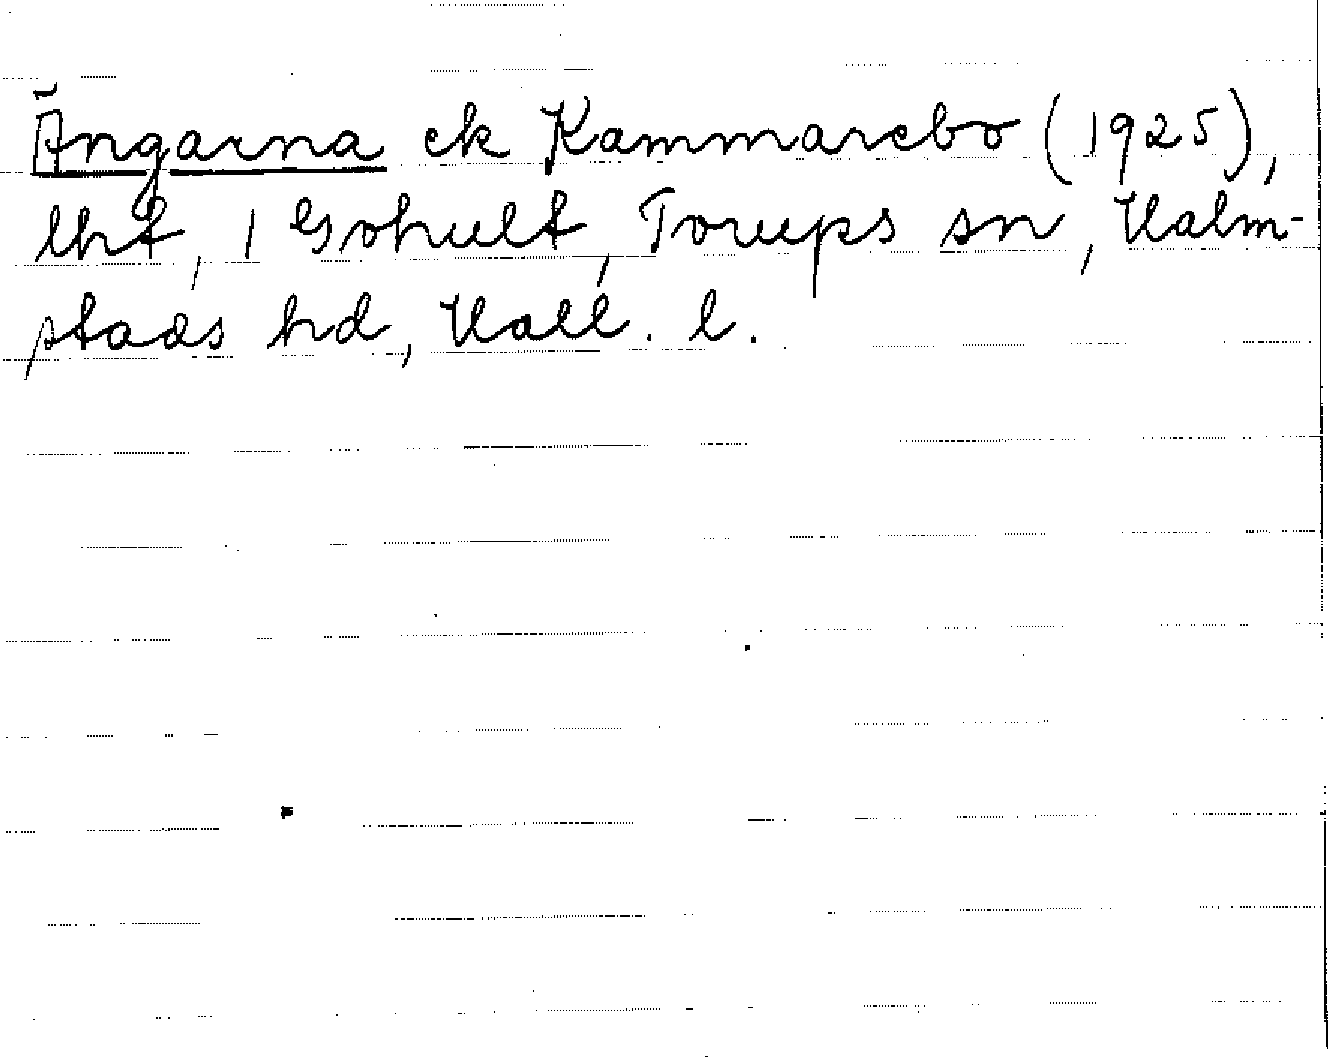 Ängarna ek Kammarebo (1925),
lht, 1 Gohult, Torups sn, Halm-
stads hd, Hall. l.